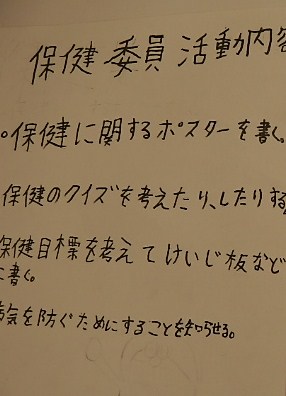 保健委員活動内容
○保健に関するポスターを書く。
保健のクイズを考えたり、したりする
保健目標を考えてけいじ板など
に書く。
病気を防ぐためにすることを知らせる。